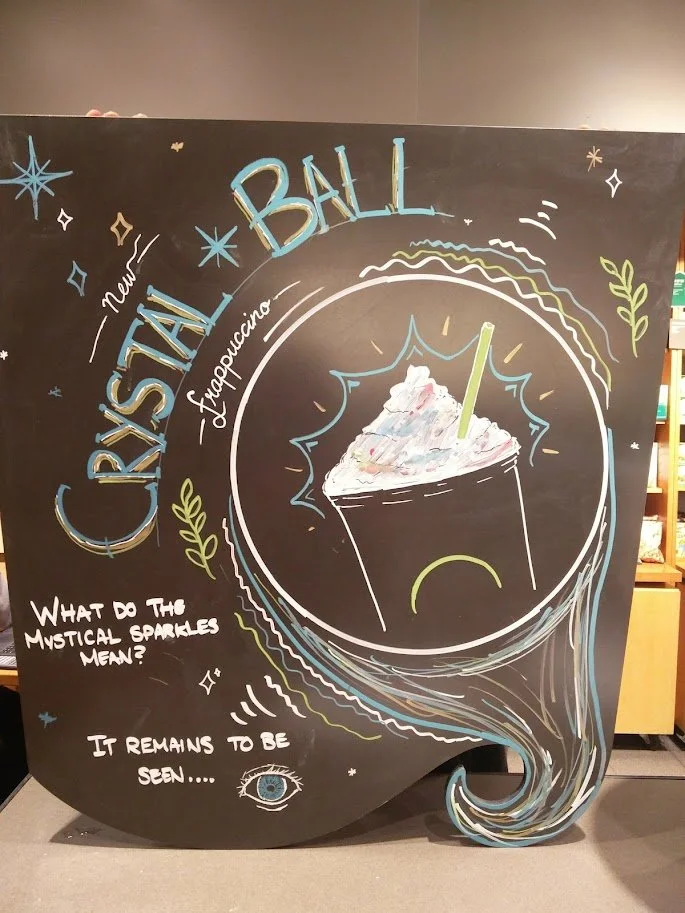 New
CRYSTAL BALL
frappuccino
WHAT DO THE
MYSTICAL SPARKLES
MEAN?
IT REMAINS TO BE
SEEN....